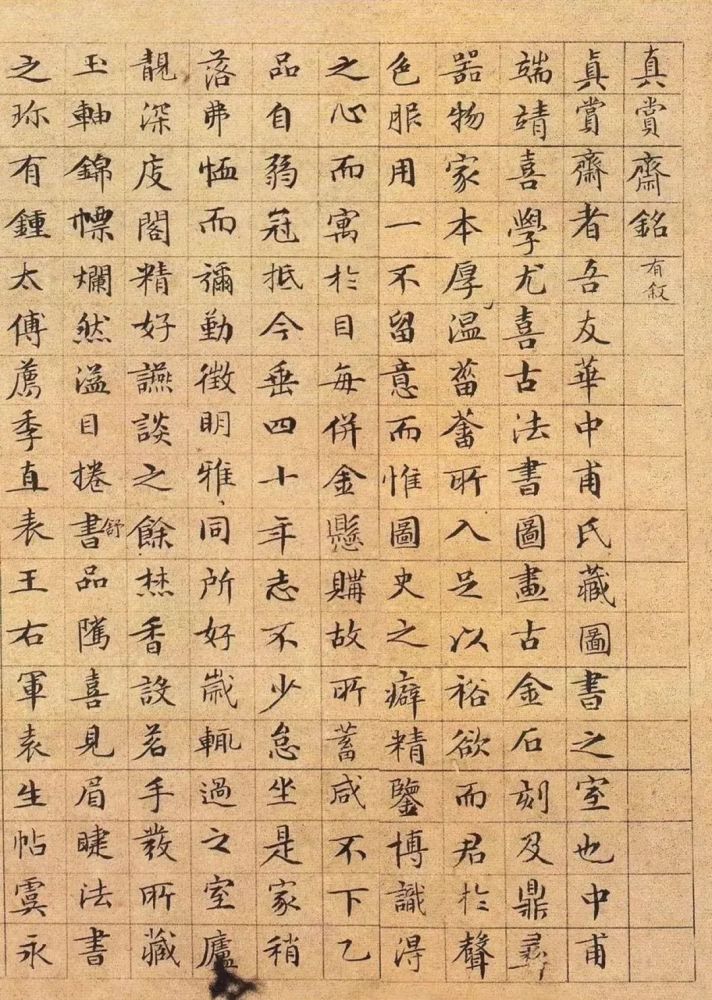 真賞齋銘有敘
真賞齋者吾友華中甫氏藏圖書之室也中甫
端靖喜學尤喜古法書圖畫古金石刻及鼎彝
器物家本厚溫菑畬所入足以裕欲而君於聲
色服用一不留意而惟圖史之癖精鑒博識得
之心而寓於目每併金懸購故所蓄咸不下乙
品自弱冠抵今垂四十年志不少怠坐是家稍
落弗恤而彌勤徵明雅同所好歲輒過之室廬
靚深庋閣精好讌談之餘焚香設茗手發所藏
玉軸錦幖爛然溢目捲舒書品隲喜見眉睫法書
之珎有鍾太傅薦季直表王右軍袁生帖虞永